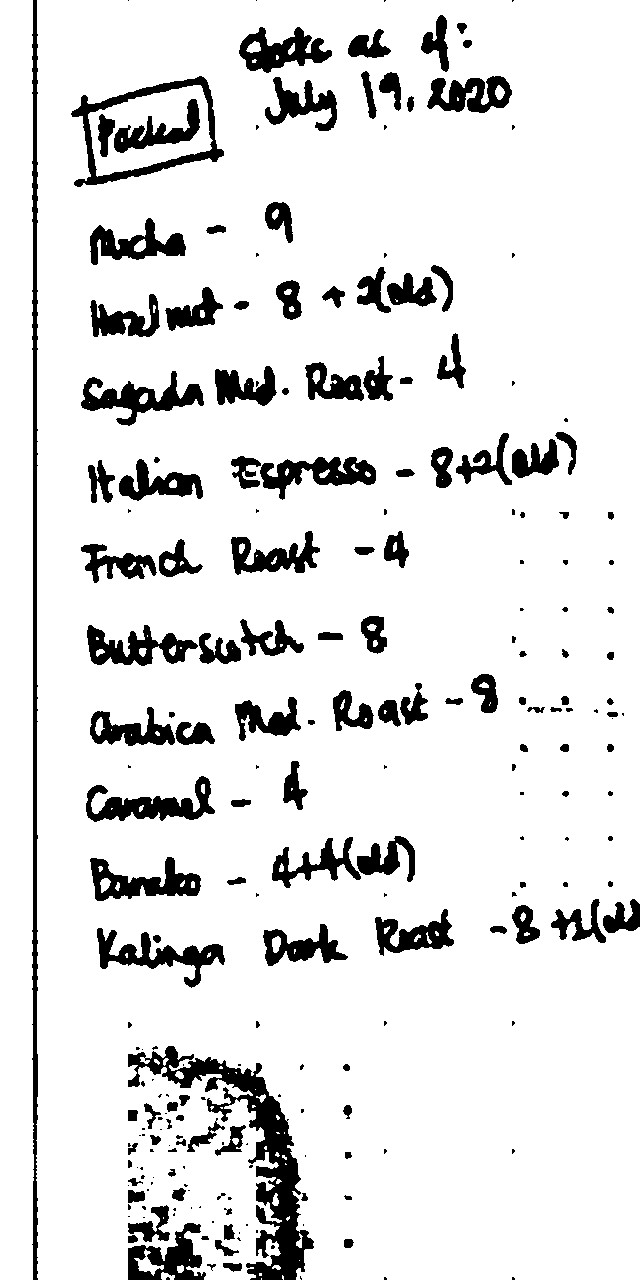 Stocks as of:
July 19, 2020
Packed
Mocha - 9
Hazelnut - 8 + 2(old)
Sagada Med. Roast - 4
Italian Espresso - 8+2(old)
French Roast - 4
Butterscotch - 8
Arabica Med. Roast - 8
Caramel - 4
Barako - 4+4(old)
Kalinga Dark Roast - 8 +1(old